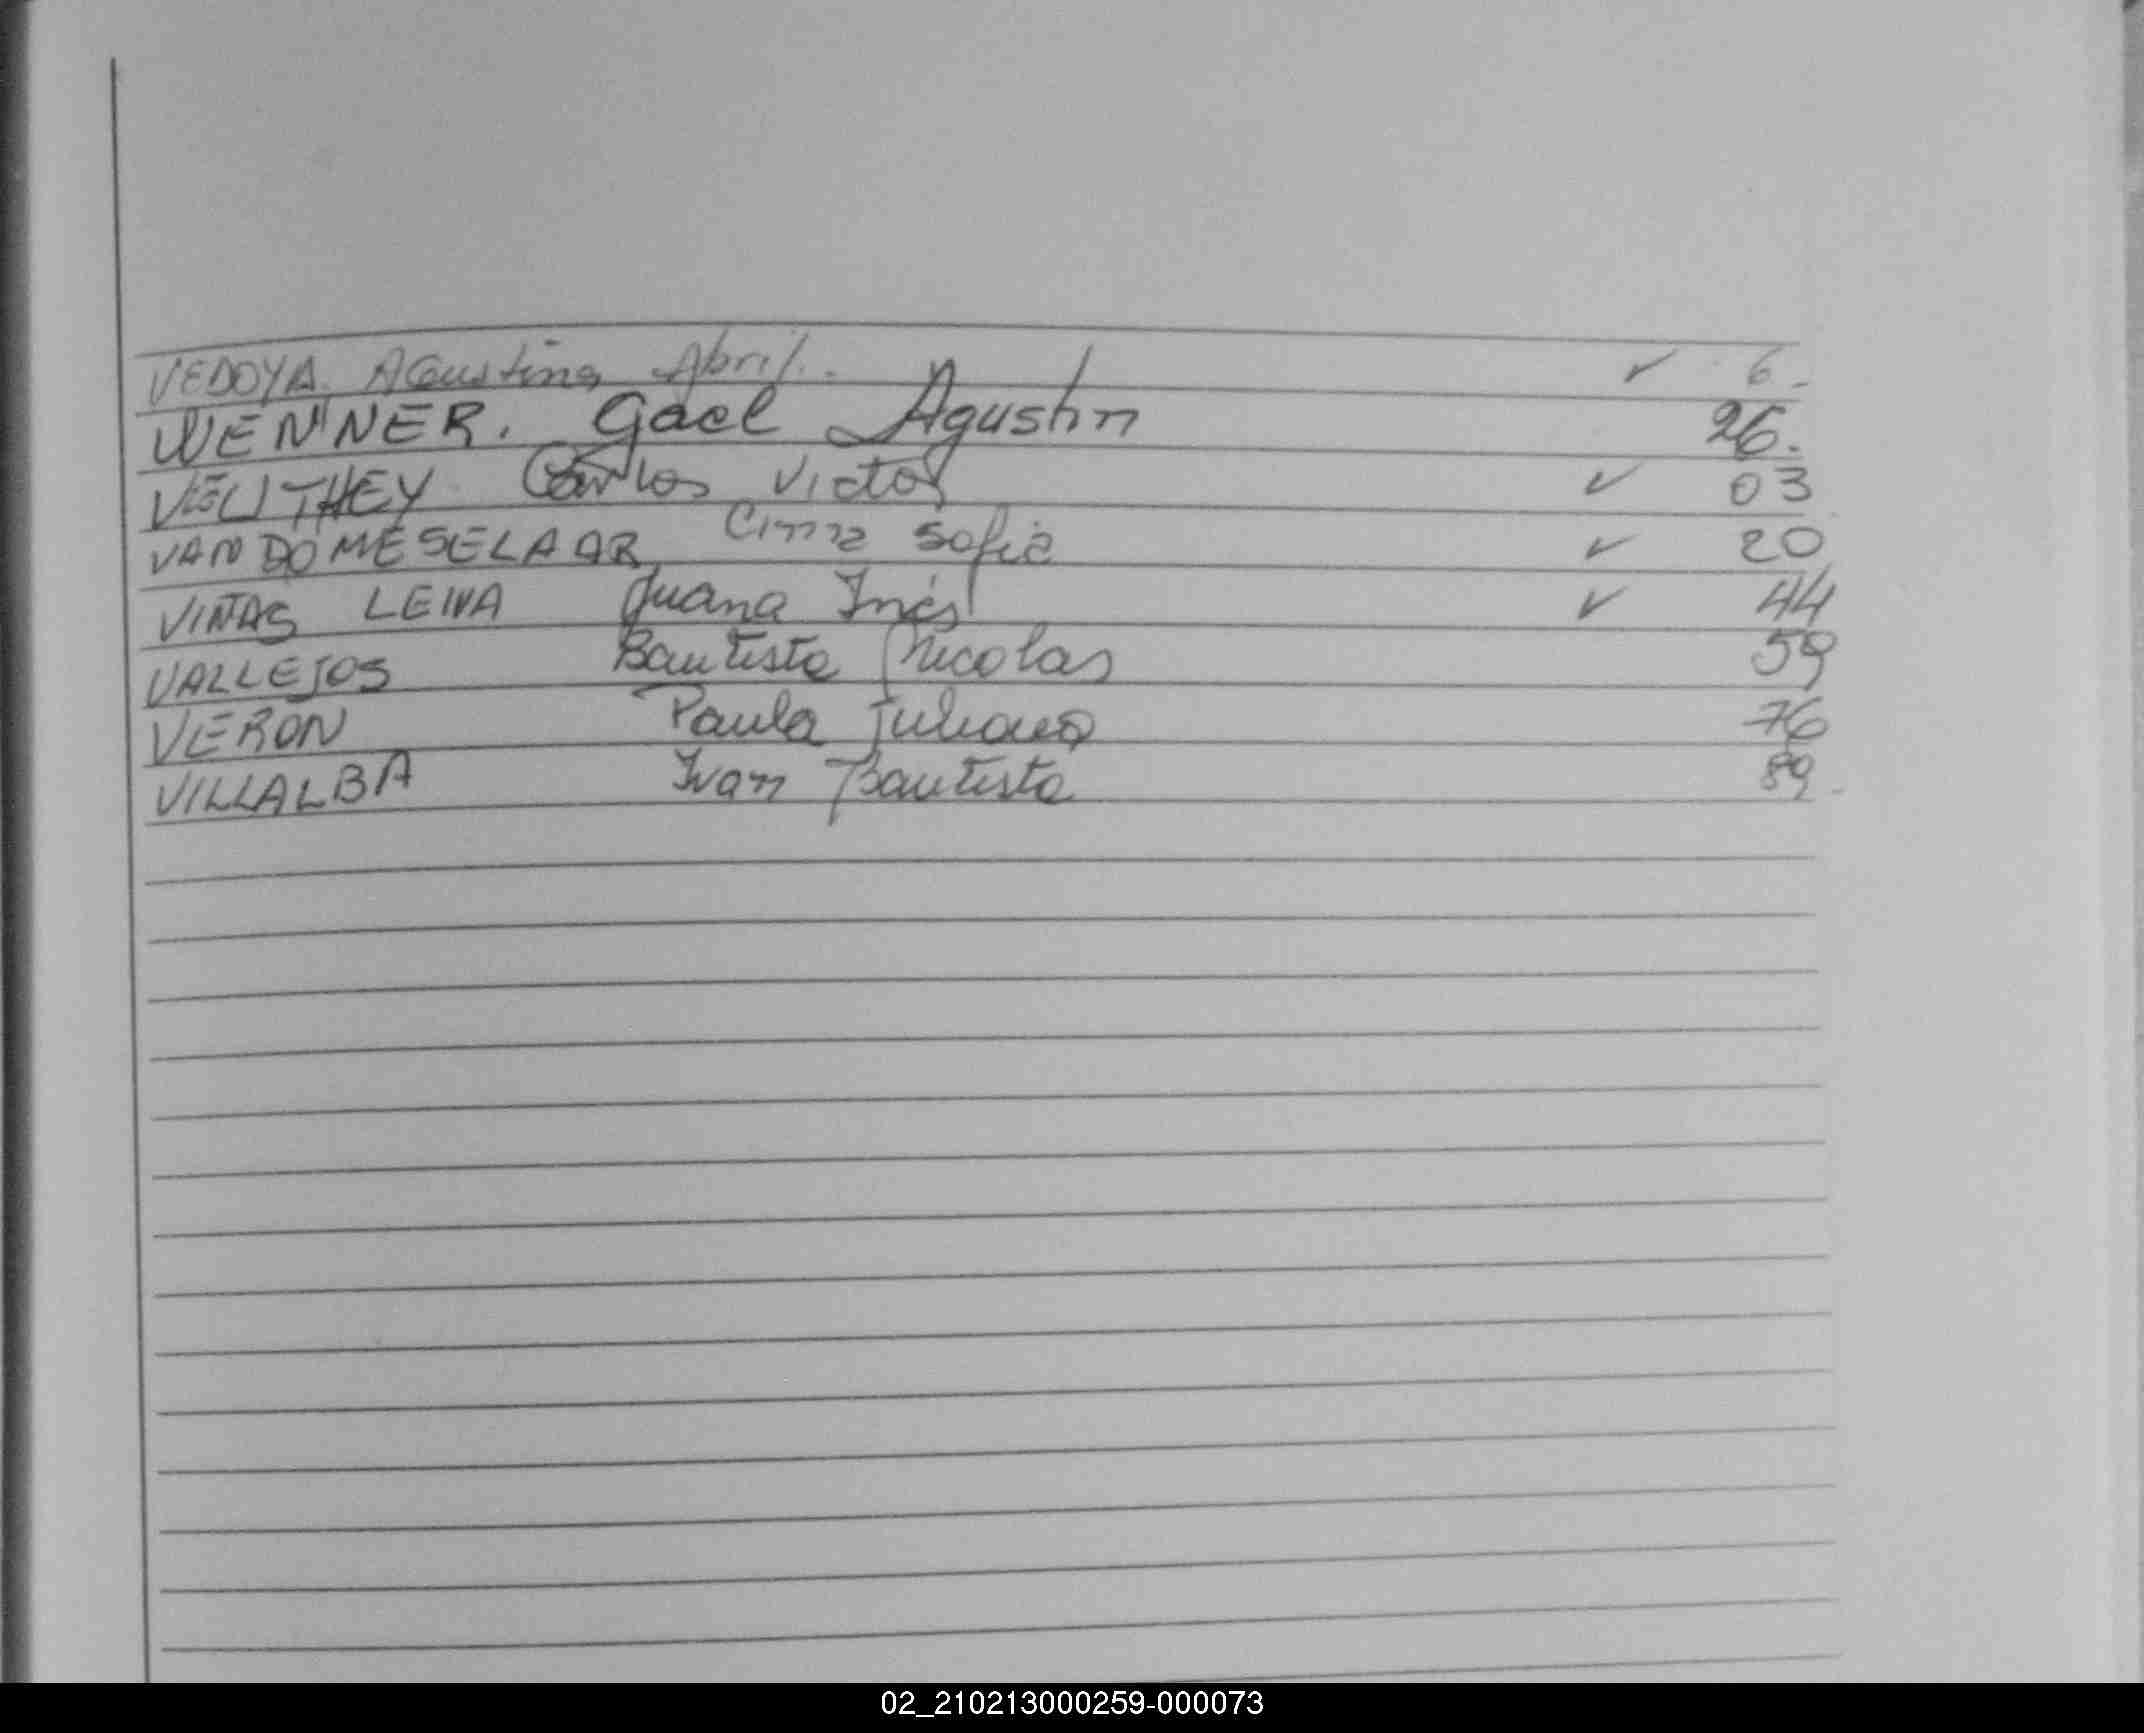 VEDOYA. Agustina Abril. ✓ 6.
WENNER. Gael Agustin 26.
VEUTHEY Carlos Victor ✓ 03
VAN DOMESELAAR Sofia ✓ 20
VIÑAS LEIVA Juana Inés ✓ 44
VALLEJOS Bautista Nicolas 59
VERON Paula Juliana 76
VILLALBA Ivan Bautista 89.
02_210213000259-000073